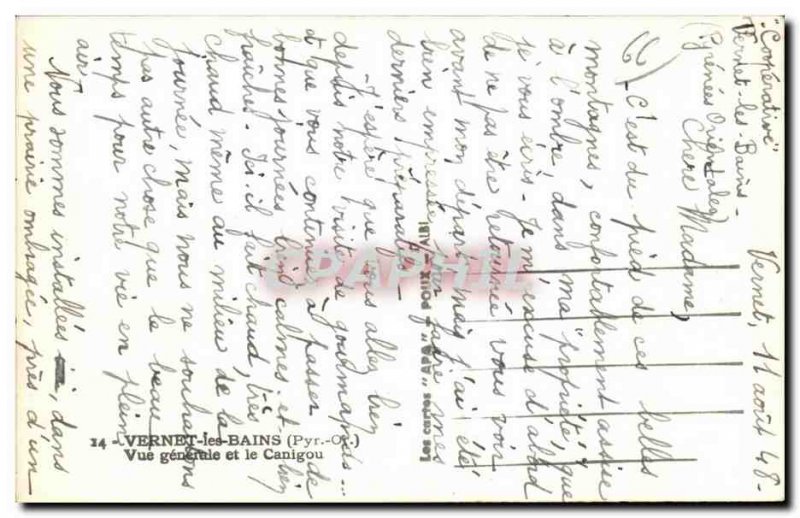 "Coopérative"
Vernet-les-Bains-
(Pyrénées Orientales)
Vernet, 11 août 48-
Chère Madame,
(6)
C'est du pied de ces belles
montagnes, confortablement assise
à l'ombre, dans ma "propriété", que
je vous écris - Je m'excuse d'abord
de ne pas être retournée vous voir
avant mon départ, mais j'ai été
bien empressée à faire mes
derniers préparatifs -
J'espère que vous allez bien
depuis notre visite de gourmands...
et que vous continuez à passer de
bonnes journées bien calmes et bien
fraîches - Ici il fait chaud, très
chaud même au milieu de la
journée, mais nous ne souhaitons
pas autre chose que le beau
temps pour notre vie en plein
air -
Nous sommes installées, dans
une prairie ombragée, près d'un
14 - VERNET-les-BAINS (Pyr.-Or.)
Vue générale et le Canigou
Les cartes "APA" - POUX - ALBI
CPAPHIL